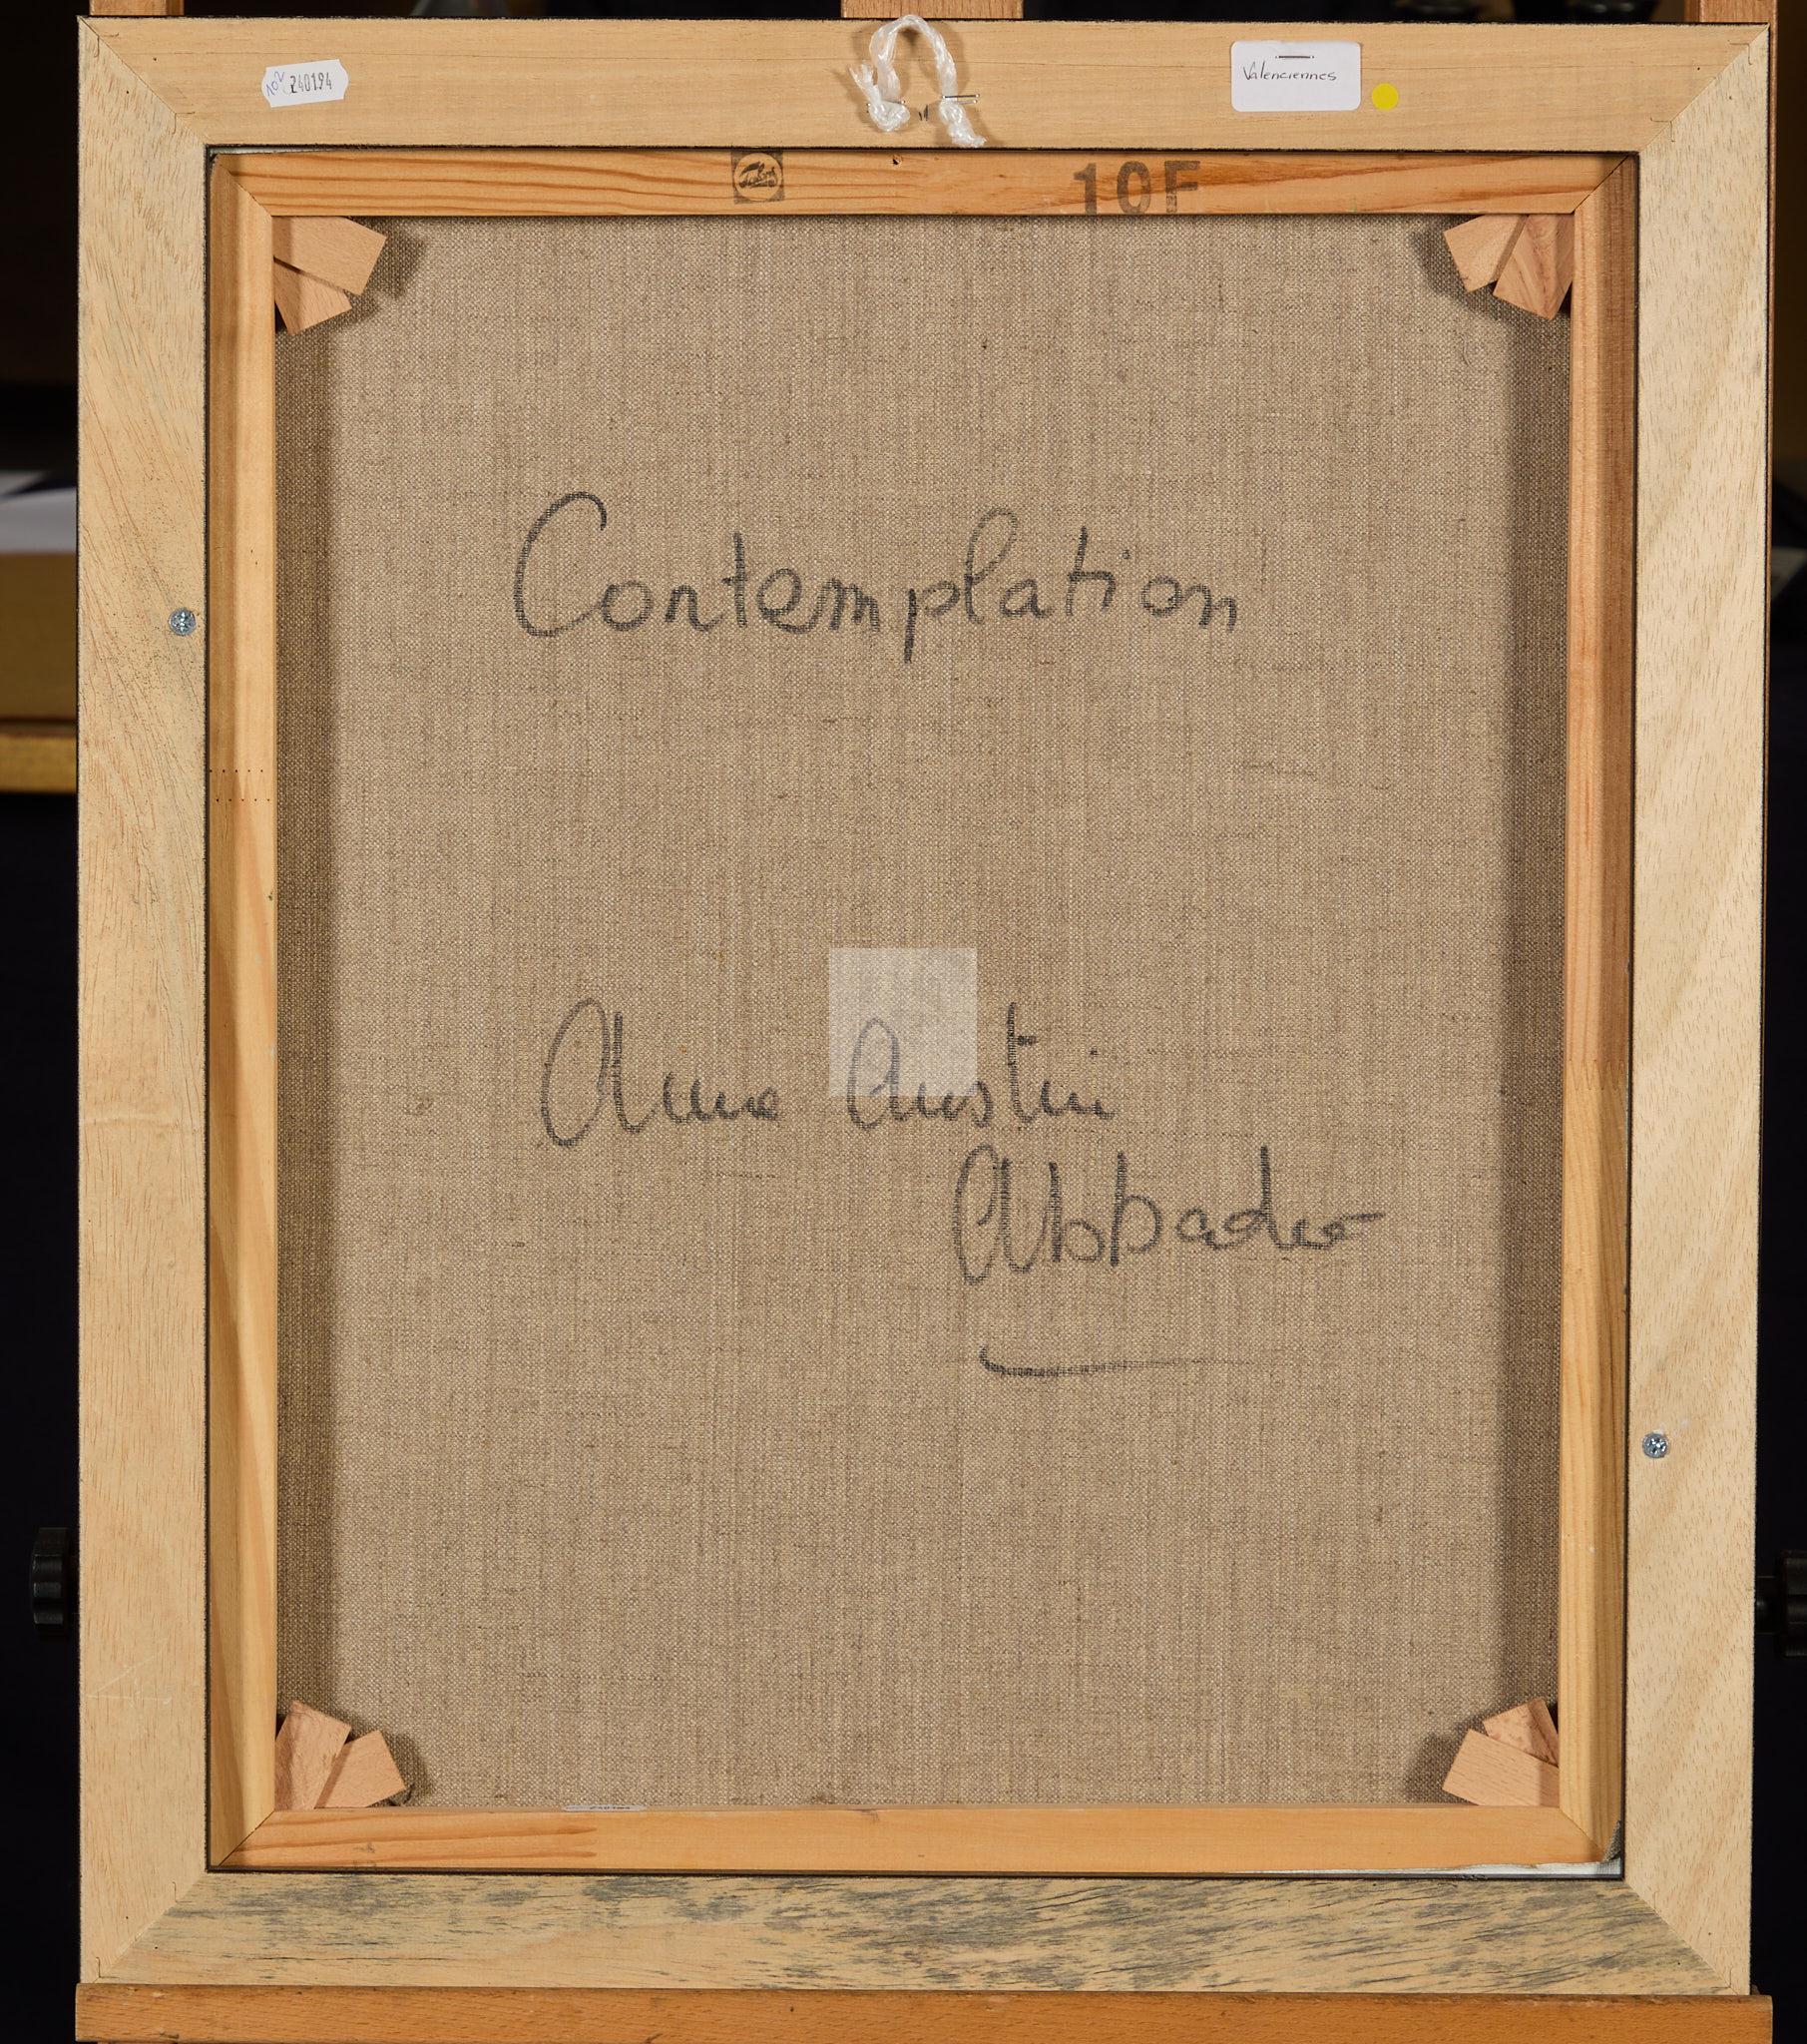 N°2 240194
Valenciennes
Talens
10F
Contemplation
Anne Austin
Abbadie